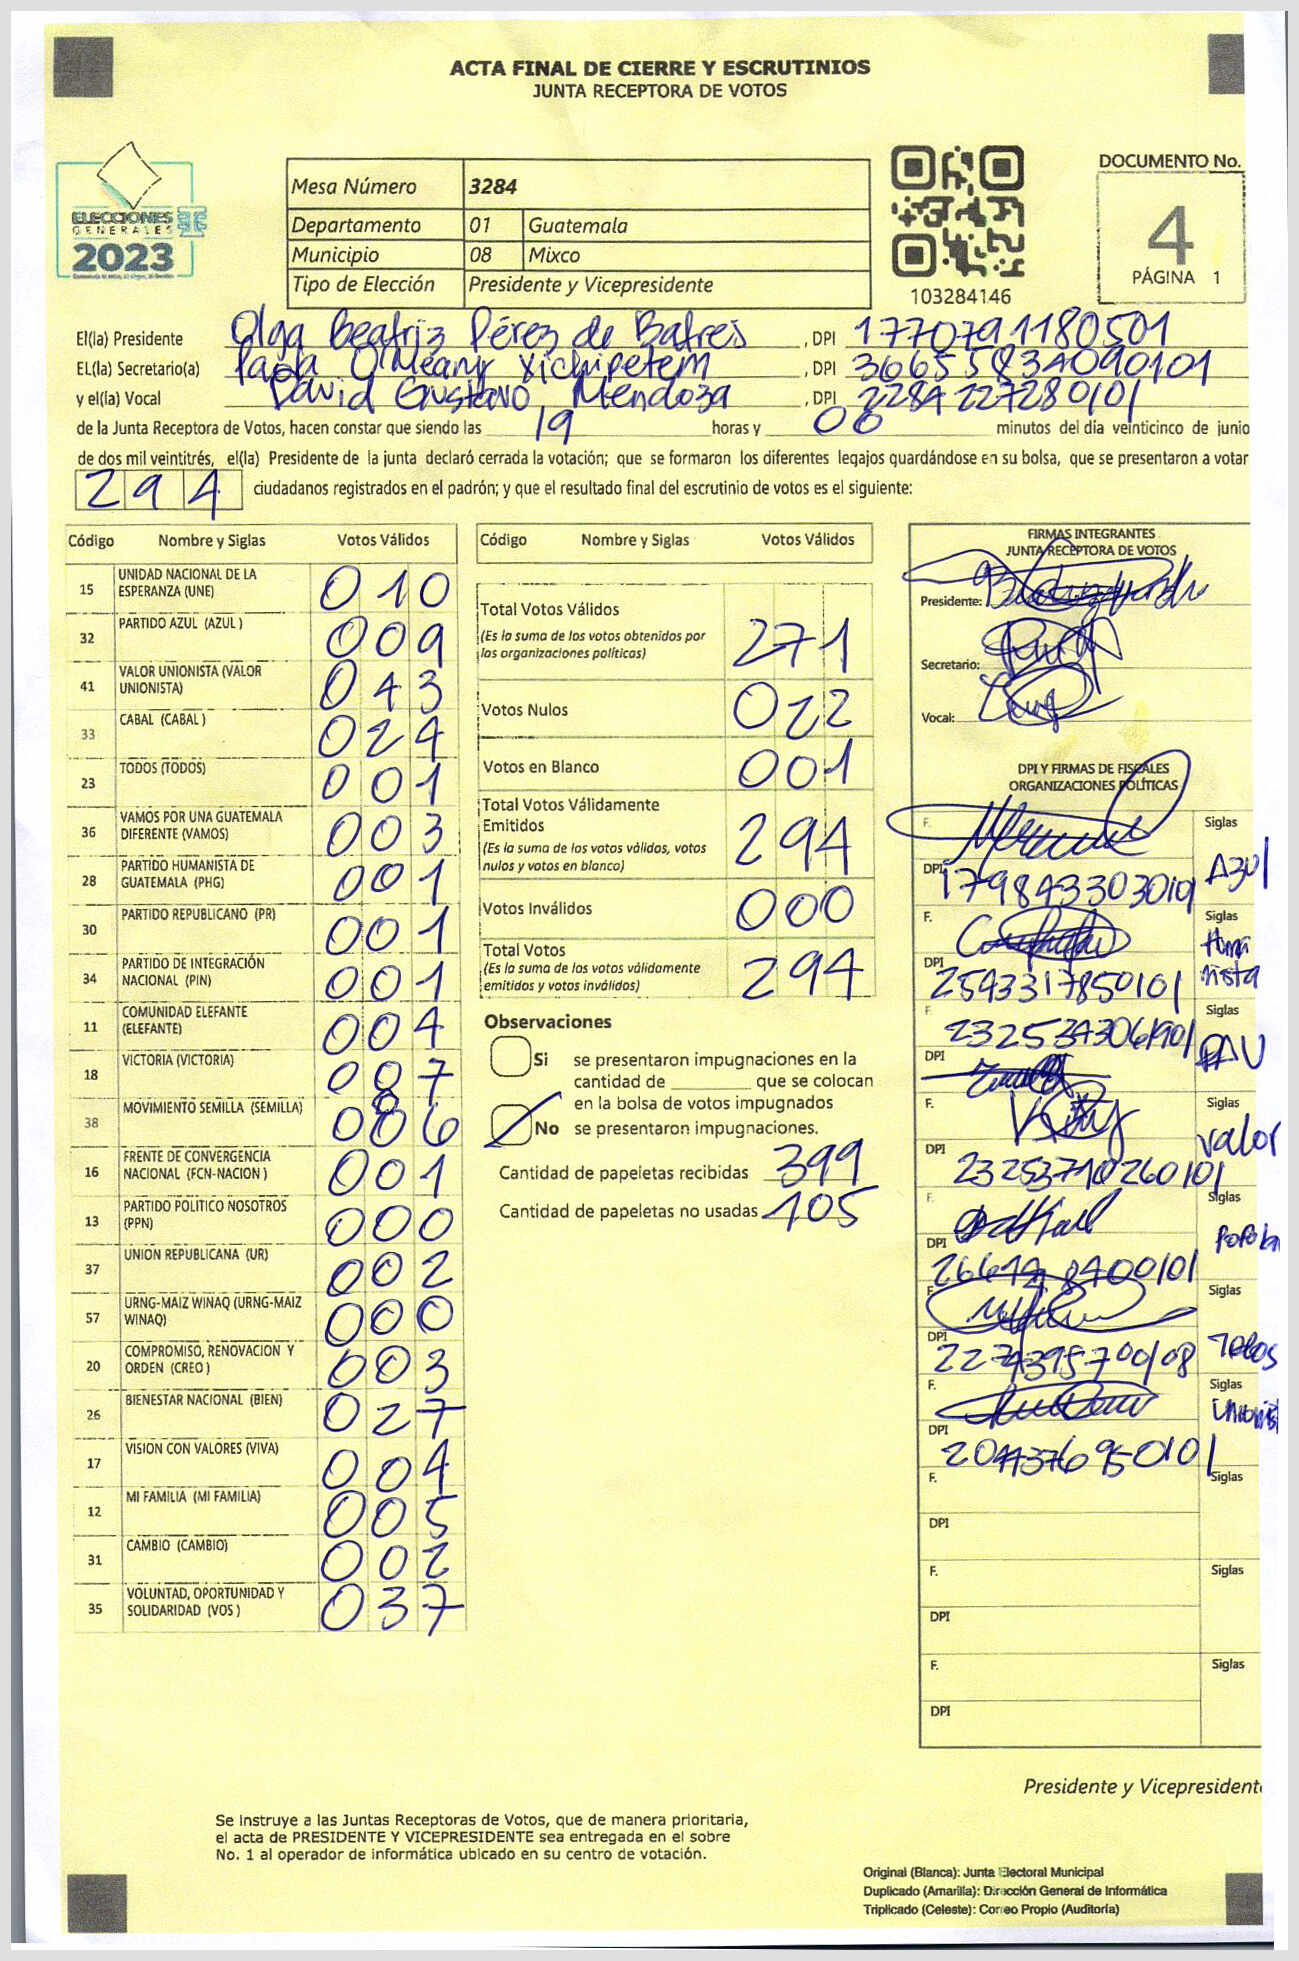 ACTA FINAL DE CIERRE Y ESCRUTINIOS
JUNTA RECEPTORA DE VOTOS
ELECCIONES
GENERALES
2023
Mesa Número 3284
Departamento 01 Guatemala
Municipio 08 Mixco
Tipo de Elección Presidente y Vicepresidente
103284146
DOCUMENTO No.
4
PÁGINA 1
El(la) Presidente Olga Beatriz Pérez de Batres, DPI 1770791180501
EL(la) Secretario(a) Paola O'Meany Xichipetem, DPI 3665583A090101
y el(la) Vocal David Gustavo Mendoza, DPI 2284227280101
de la Junta Receptora de Votos, hacen constar que siendo las 19 horas y 00 minutos del día veinticinco de junio
de dos mil veintitrés, el(la) Presidente de la junta declaró cerrada la votación; que se formaron los diferentes legajos guardándose en su bolsa, que se presentaron a votar
294 ciudadanos registrados en el padrón; y que el resultado final del escrutinio de votos es el siguiente:
Código Nombre y Siglas Votos Válidos
15 UNIDAD NACIONAL DE LA ESPERANZA (UNE) 010
32 PARTIDO AZUL (AZUL) 009
41 VALOR UNIONISTA (VALOR UNIONISTA) 043
33 CABAL (CABAL) 024
23 TODOS (TODOS) 001
36 VAMOS POR UNA GUATEMALA DIFERENTE (VAMOS) 003
28 PARTIDO HUMANISTA DE GUATEMALA (PHG) 001
30 PARTIDO REPUBLICANO (PR) 001
34 PARTIDO DE INTEGRACIÓN NACIONAL (PIN) 001
11 COMUNIDAD ELEFANTE (ELEFANTE) 004
18 VICTORIA (VICTORIA) 007
38 MOVIMIENTO SEMILLA (SEMILLA) 086
16 FRENTE DE CONVERGENCIA NACIONAL (FCN-NACION) 001
13 PARTIDO POLITICO NOSOTROS (PPN) 000
37 UNION REPUBLICANA (UR) 002
57 URNG-MAIZ WINAQ (URNG-MAIZ WINAQ) 000
20 COMPROMISO, RENOVACION Y ORDEN (CREO) 003
26 BIENESTAR NACIONAL (BIEN) 027
17 VISION CON VALORES (VIVA) 004
12 MI FAMILIA (MI FAMILIA) 005
31 CAMBIO (CAMBIO) 002
35 VOLUNTAD, OPORTUNIDAD Y SOLIDARIDAD (VOS) 037
Código Nombre y Siglas Votos Válidos
Total Votos Válidos 271
(Es la suma de los votos obtenidos por
las organizaciones políticas)
Votos Nulos 022
Votos en Blanco 001
Total Votos Válidamente
Emitidos 294
(Es la suma de los votos válidos, votos
nulos y votos en blanco)
Votos Inválidos 000
Total Votos 294
(Es la suma de los votos válidamente
emitidos y votos inválidos)
Observaciones
Si se presentaron impugnaciones en la
cantidad de ________ que se colocan
en la bolsa de votos impugnados
No se presentaron impugnaciones.
Cantidad de papeletas recibidas 399
Cantidad de papeletas no usadas 105
FIRMAS INTEGRANTES
JUNTA RECEPTORA DE VOTOS
Presidente:
Secretario:
Vocal:
DPI Y FIRMAS DE FISCALES
ORGANIZACIONES POLÍTICAS
F. Siglas
DPI 1798433030101 Azul
F. Siglas
DPI 2593317850101
F. Siglas
DPI
F. Siglas
DPI 23253710260101 valor
F. Siglas
DPI
F. Siglas
DPI 2274395700108 Todos
F. Siglas
DPI
F. Siglas
DPI
F. Siglas
DPI
F. Siglas
DPI
Presidente y Vicepresident
Se instruye a las Juntas Receptoras de Votos, que de manera prioritaria,
el acta de PRESIDENTE Y VICEPRESIDENTE sea entregada en el sobre
No. 1 al operador de informática ubicado en su centro de votación.
Original (Blanca): Junta Electoral Municipal
Duplicado (Amarilla): Dirección General de Informática
Triplicado (Celeste): Correo Propio (Auditoría)